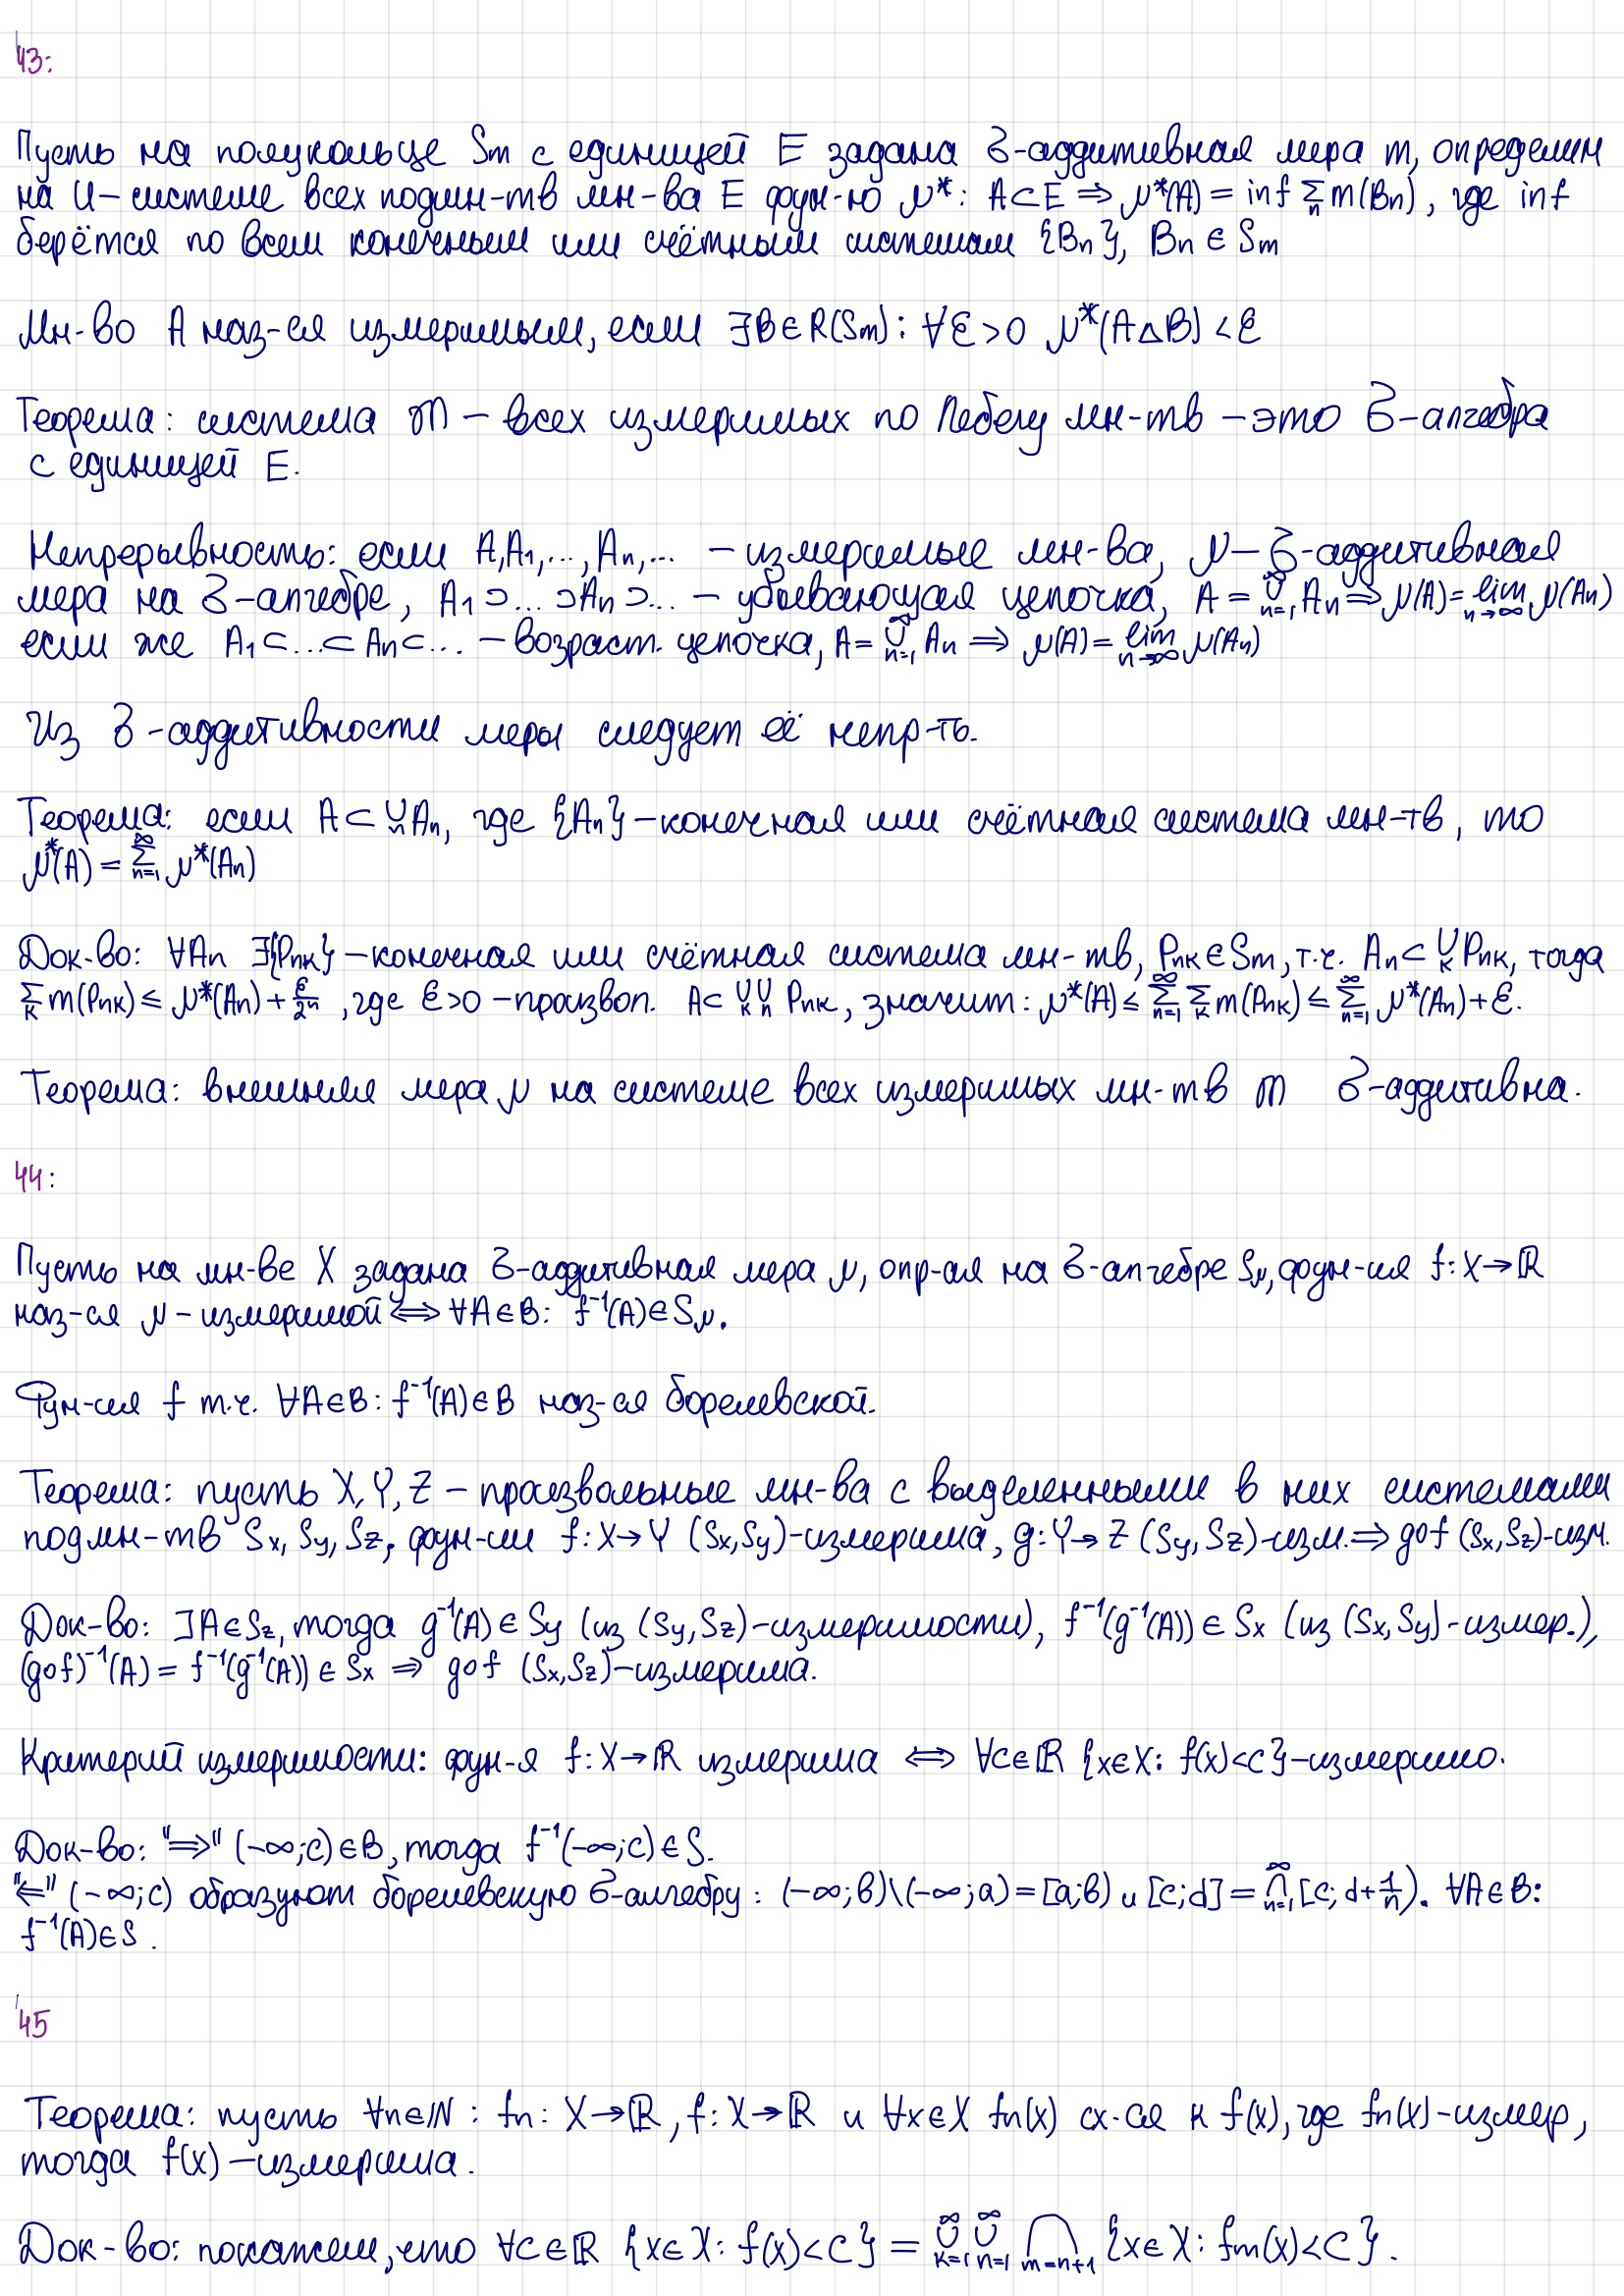 43:
Пусть на полукольце Sm с единицей E задана σ-аддитивная мера m, определим
на U-системе всех подмн-тв мн-ва E фун-ю μ*: A⊂E ⇒ μ*(A) = inf ∑ₙ m(Bn), где inf
берётся по всем конечным или счётным системам {Bn}, Bn ∈ Sm
Мн-во A наз-ся измеримым, если ∃B∈R(Sm): ∀ε>0 μ*(A△B)<ε
Теорема: система 𝔐 – всех измеримых по Лебегу мн-тв – это σ-алгебра
с единицей E.
Непрерывность: если A,A₁,...,An,... – измеримые мн-ва, μ – σ-аддитивная
мера на σ-алгебре, A₁⊃...⊃An⊃... – убывающая цепочка, A = ∪_{n=1}^∞ An ⇒ μ(A)=lim_{n→∞} μ(An)
если же A₁⊂...⊂An⊂... – возраст. цепочка, A = ∪_{n=1}^∞ An ⇒ μ(A)=lim_{n→∞} μ(An)
Из σ-аддитивности меры следует её непр-ть.
Теорема: если A⊂∪ₙAn, где {An} – конечная или счётная система мн-тв, то
μ*(A) = ∑_{n=1}^∞ μ*(An)
Док-во: ∀An ∃{Pnк} – конечная или счётная система мн-тв, Pnк∈Sm, т.ч. An⊂∪ₖPnк, тогда
∑ₖ m(Pnк) ≤ μ*(An)+ε/2ⁿ, где ε>0 – произвол. A⊂ ∪ₖ∪ₙ Pnк, значит: μ*(A) ≤ ∑_{n=1}^∞ ∑ₖ m(Pnк) ≤ ∑_{n=1}^∞ μ*(An)+ε.
Теорема: внешняя мера μ на системе всех измеримых мн-тв 𝔐 σ-аддитивна.
44:
Пусть на мн-ве X задана σ-аддитивная мера μ, опр-ая на σ-алгебре Sμ, фун-ия f: X→ℝ
наз-ся μ – измеримой ⟺ ∀A∈B: f⁻¹(A)∈Sμ.
Фун-ия f т.ч. ∀A∈B: f⁻¹(A)∈B наз-ся борелевской.
Теорема: пусть X, Y, Z – произвольные мн-ва с выделенными в них системами
подмн-тв Sx, Sy, Sz, фун-ии f: X→Y (Sx,Sy)-измерима, g: Y→Z (Sy,Sz)-изм. ⇒ g∘f (Sx,Sz)-изм.
Док-во: ∃A∈Sz, тогда g⁻¹(A)∈Sy (из (Sy,Sz)-измеримости), f⁻¹(g⁻¹(A))∈Sx (из (Sx,Sy)-измер.),
(g∘f)⁻¹(A) = f⁻¹(g⁻¹(A))∈Sx ⇒ g∘f (Sx,Sz)-измерима.
Критерий измеримости: фун-я f: X→ℝ измерима ⟺ ∀c∈ℝ {x∈X: f(x)<c}-измеримо.
Док-во: "⇒" (-∞;c)∈B, тогда f⁻¹(-∞;c)∈S.
"⇐" (-∞;c) образуют борелевскую σ-алгебру: (-∞;в)\(-∞;a)=[a;в) и [c;d]=∩_{n=1}^∞[c;d+1/n). ∀A∈B:
f⁻¹(A)∈S.
45
Теорема: пусть ∀n∈ℕ: fn: X→ℝ, f: X→ℝ и ∀x∈X fn(x) сх-ся к f(x), где fn(x)-измер,
тогда f(x) – измерима.
Док-во: покажем, что ∀C∈ℝ {x∈X: f(x)<C} = ∪_{к=1}^∞ ∪_{n=1}^∞ ∩_{m=n+1} {x∈X: fm(x)<C}.